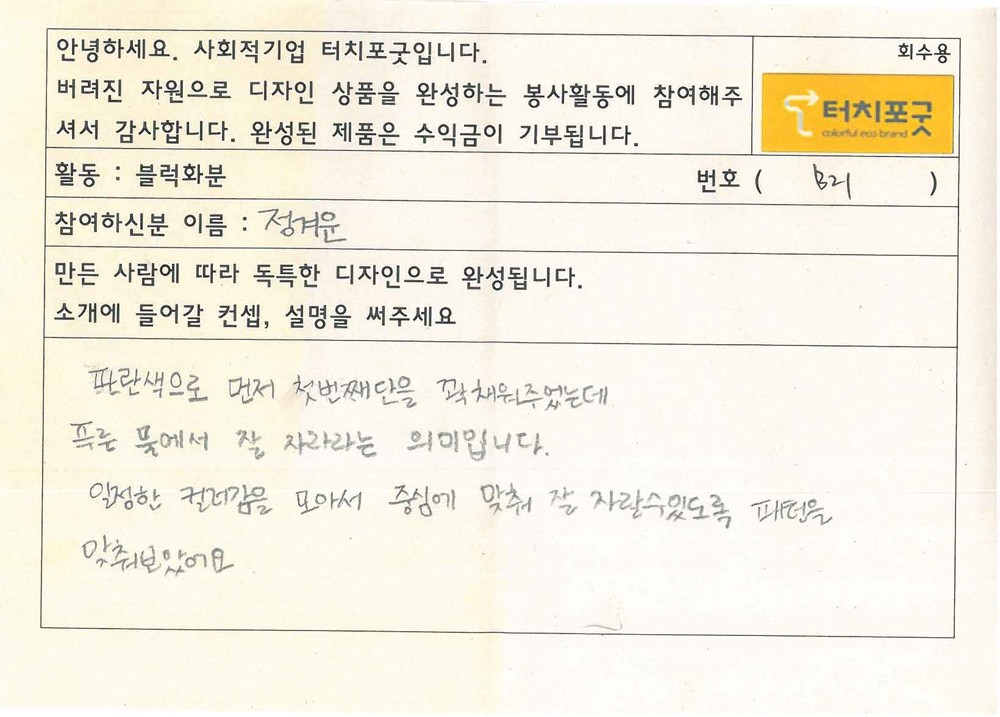 안녕하세요. 사회적기업 터치포굿입니다.
버려진 자원으로 디자인 상품을 완성하는 봉사활동에 참여해주
셔서 감사합니다. 완성된 제품은 수익금이 기부됩니다.
회수용
터치포굿
colorful eco brand
활동 : 블럭화분
번호 ( B21 )
참여하신분 이름 : 정겨운
만든 사람에 따라 독특한 디자인으로 완성됩니다.
소개에 들어갈 컨셉, 설명을 써주세요
파란색으로 먼저 첫번째단을 꽉채워주었는데
푸른 뭍에서 잘 자라라는 의미입니다.
일정한 컬러감을 모아서 중심에 맞춰 잘 자랄수있도록 패턴을
맞춰보았어요